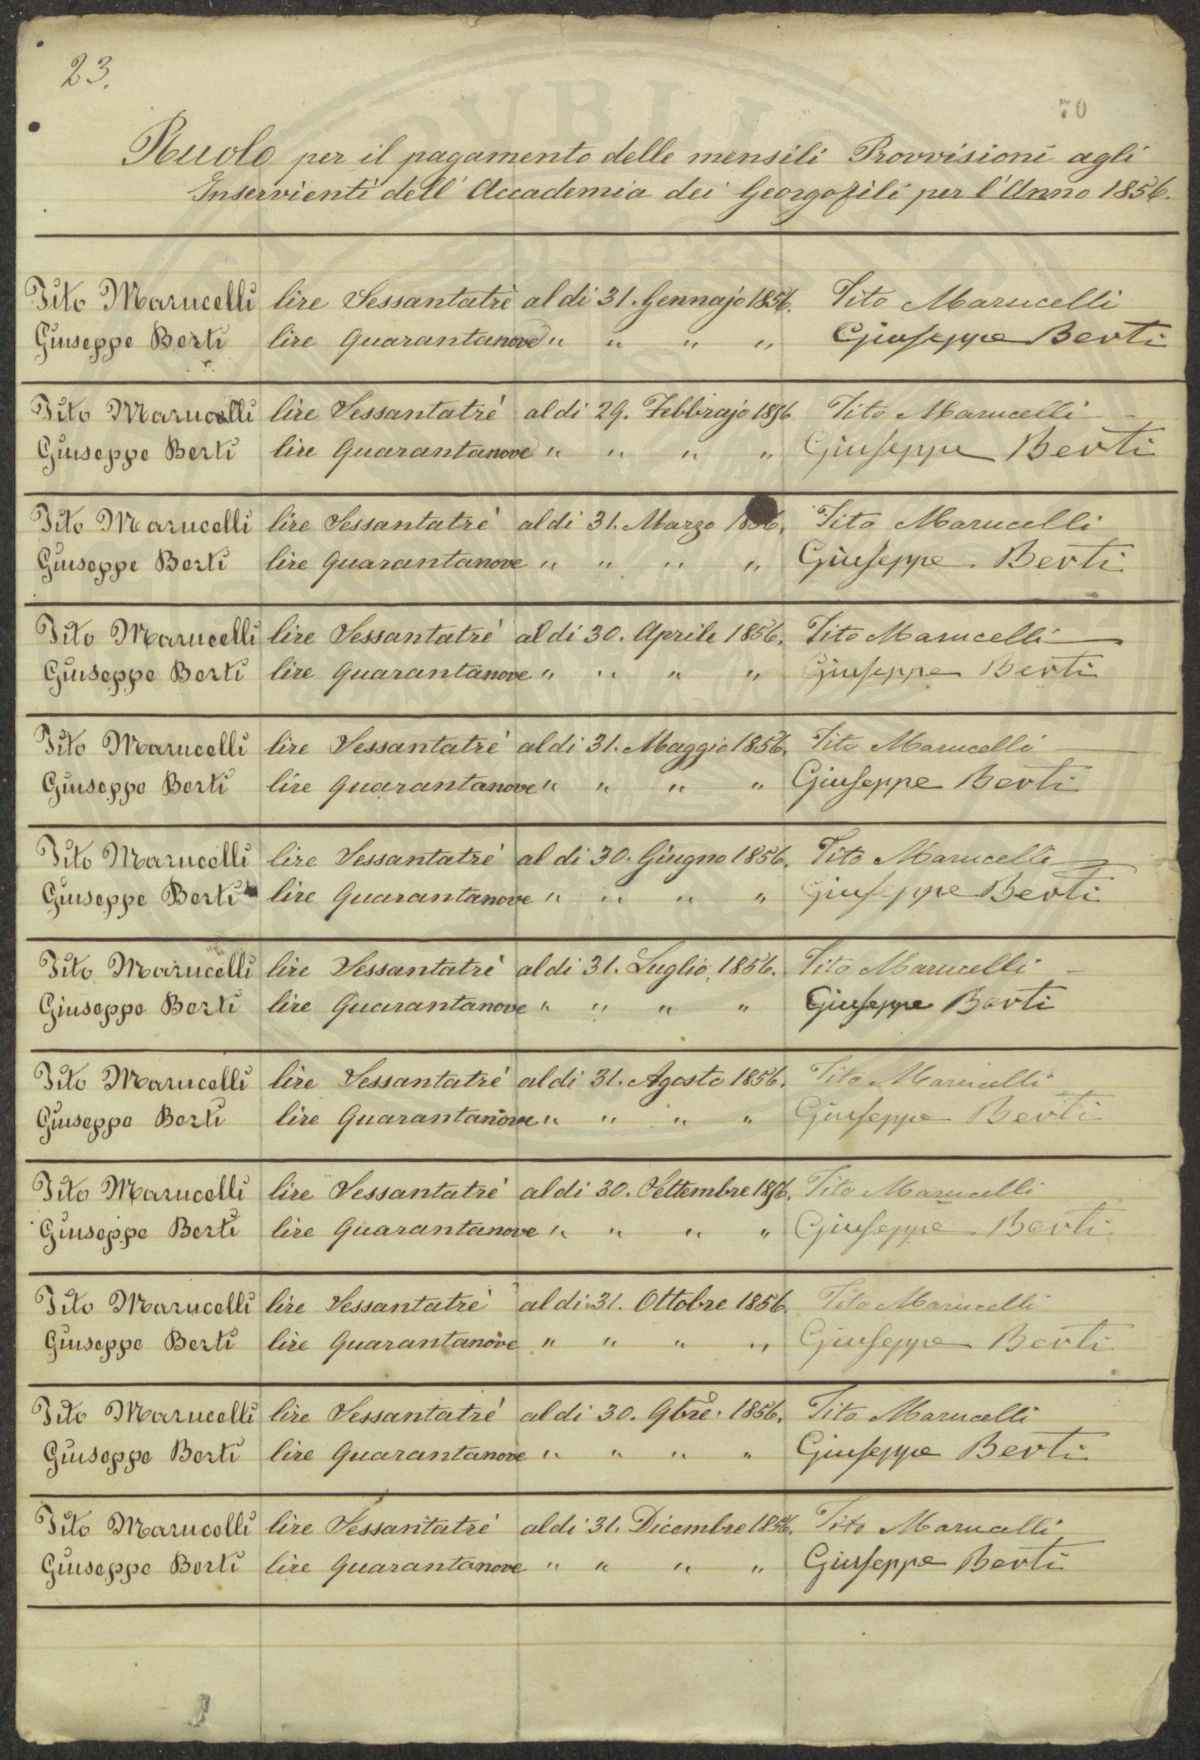 23.
70
PVBLI
Ruolo per il pagamento delle mensili Provvisioni agli
Inservienti dell' Accademia dei Georgofili per l'Anno 1856.
Tito Marucelli lire Sessantatrè al di 31. Gennajo 1856. Tito Marucelli
Giuseppe Berti lire Quarantanove " " " " Giuseppe Berti
Tito Marucelli lire Sessantatrè al di 29. Febbrajo 1856 Tito Marucelli
Giuseppe Berti lire Quarantanove " " " " Giuseppe Berti
Tito Marucelli lire Sessantatrè al di 31. Marzo 1856. Tito Marucelli
Giuseppe Berti lire Quarantanove " " " " Giuseppe Berti
Tito Marucelli lire Sessantatrè al di 30. Aprile 1856. Tito Marucelli
Giuseppe Berti lire Quarantanove " " " " Giuseppe Berti
Tito Marucelli lire Sessantatrè al di 31. Maggio 1856. Tito Marucelli
Giuseppe Berti lire Quarantanove " " " " Giuseppe Berti
Tito Marucelli lire Sessantatrè al di 30. Giugno 1856. Tito Marucelli
Giuseppe Berti lire Quarantanove " " " " Giuseppe Berti
Tito Marucelli lire Sessantatrè al di 31. Luglio 1856. Tito Marucelli
Giuseppe Berti lire Quarantanove " " " " Giuseppe Berti
Tito Marucelli lire Sessantatrè al di 31. Agosto 1856. Tito Marucelli
Giuseppe Berti lire Quarantanove " " " " Giuseppe Berti
Tito Marucelli lire Sessantatrè al di 30. Settembre 1856. Tito Marucelli
Giuseppe Berti lire Quarantanove " " " " Giuseppe Berti
Tito Marucelli lire Sessantatrè al di 31. Ottobre 1856. Tito Marucelli
Giuseppe Berti lire Quarantanove " " " " Giuseppe Berti
Tito Marucelli lire Sessantatrè al di 30. 9bre. 1856. Tito Marucelli
Giuseppe Berti lire Quarantanove " " " " Giuseppe Berti
Tito Marucelli lire Sessantatrè al di 31. Dicembre 1856. Tito Marucelli
Giuseppe Berti lire Quarantanove " " " " Giuseppe Berti